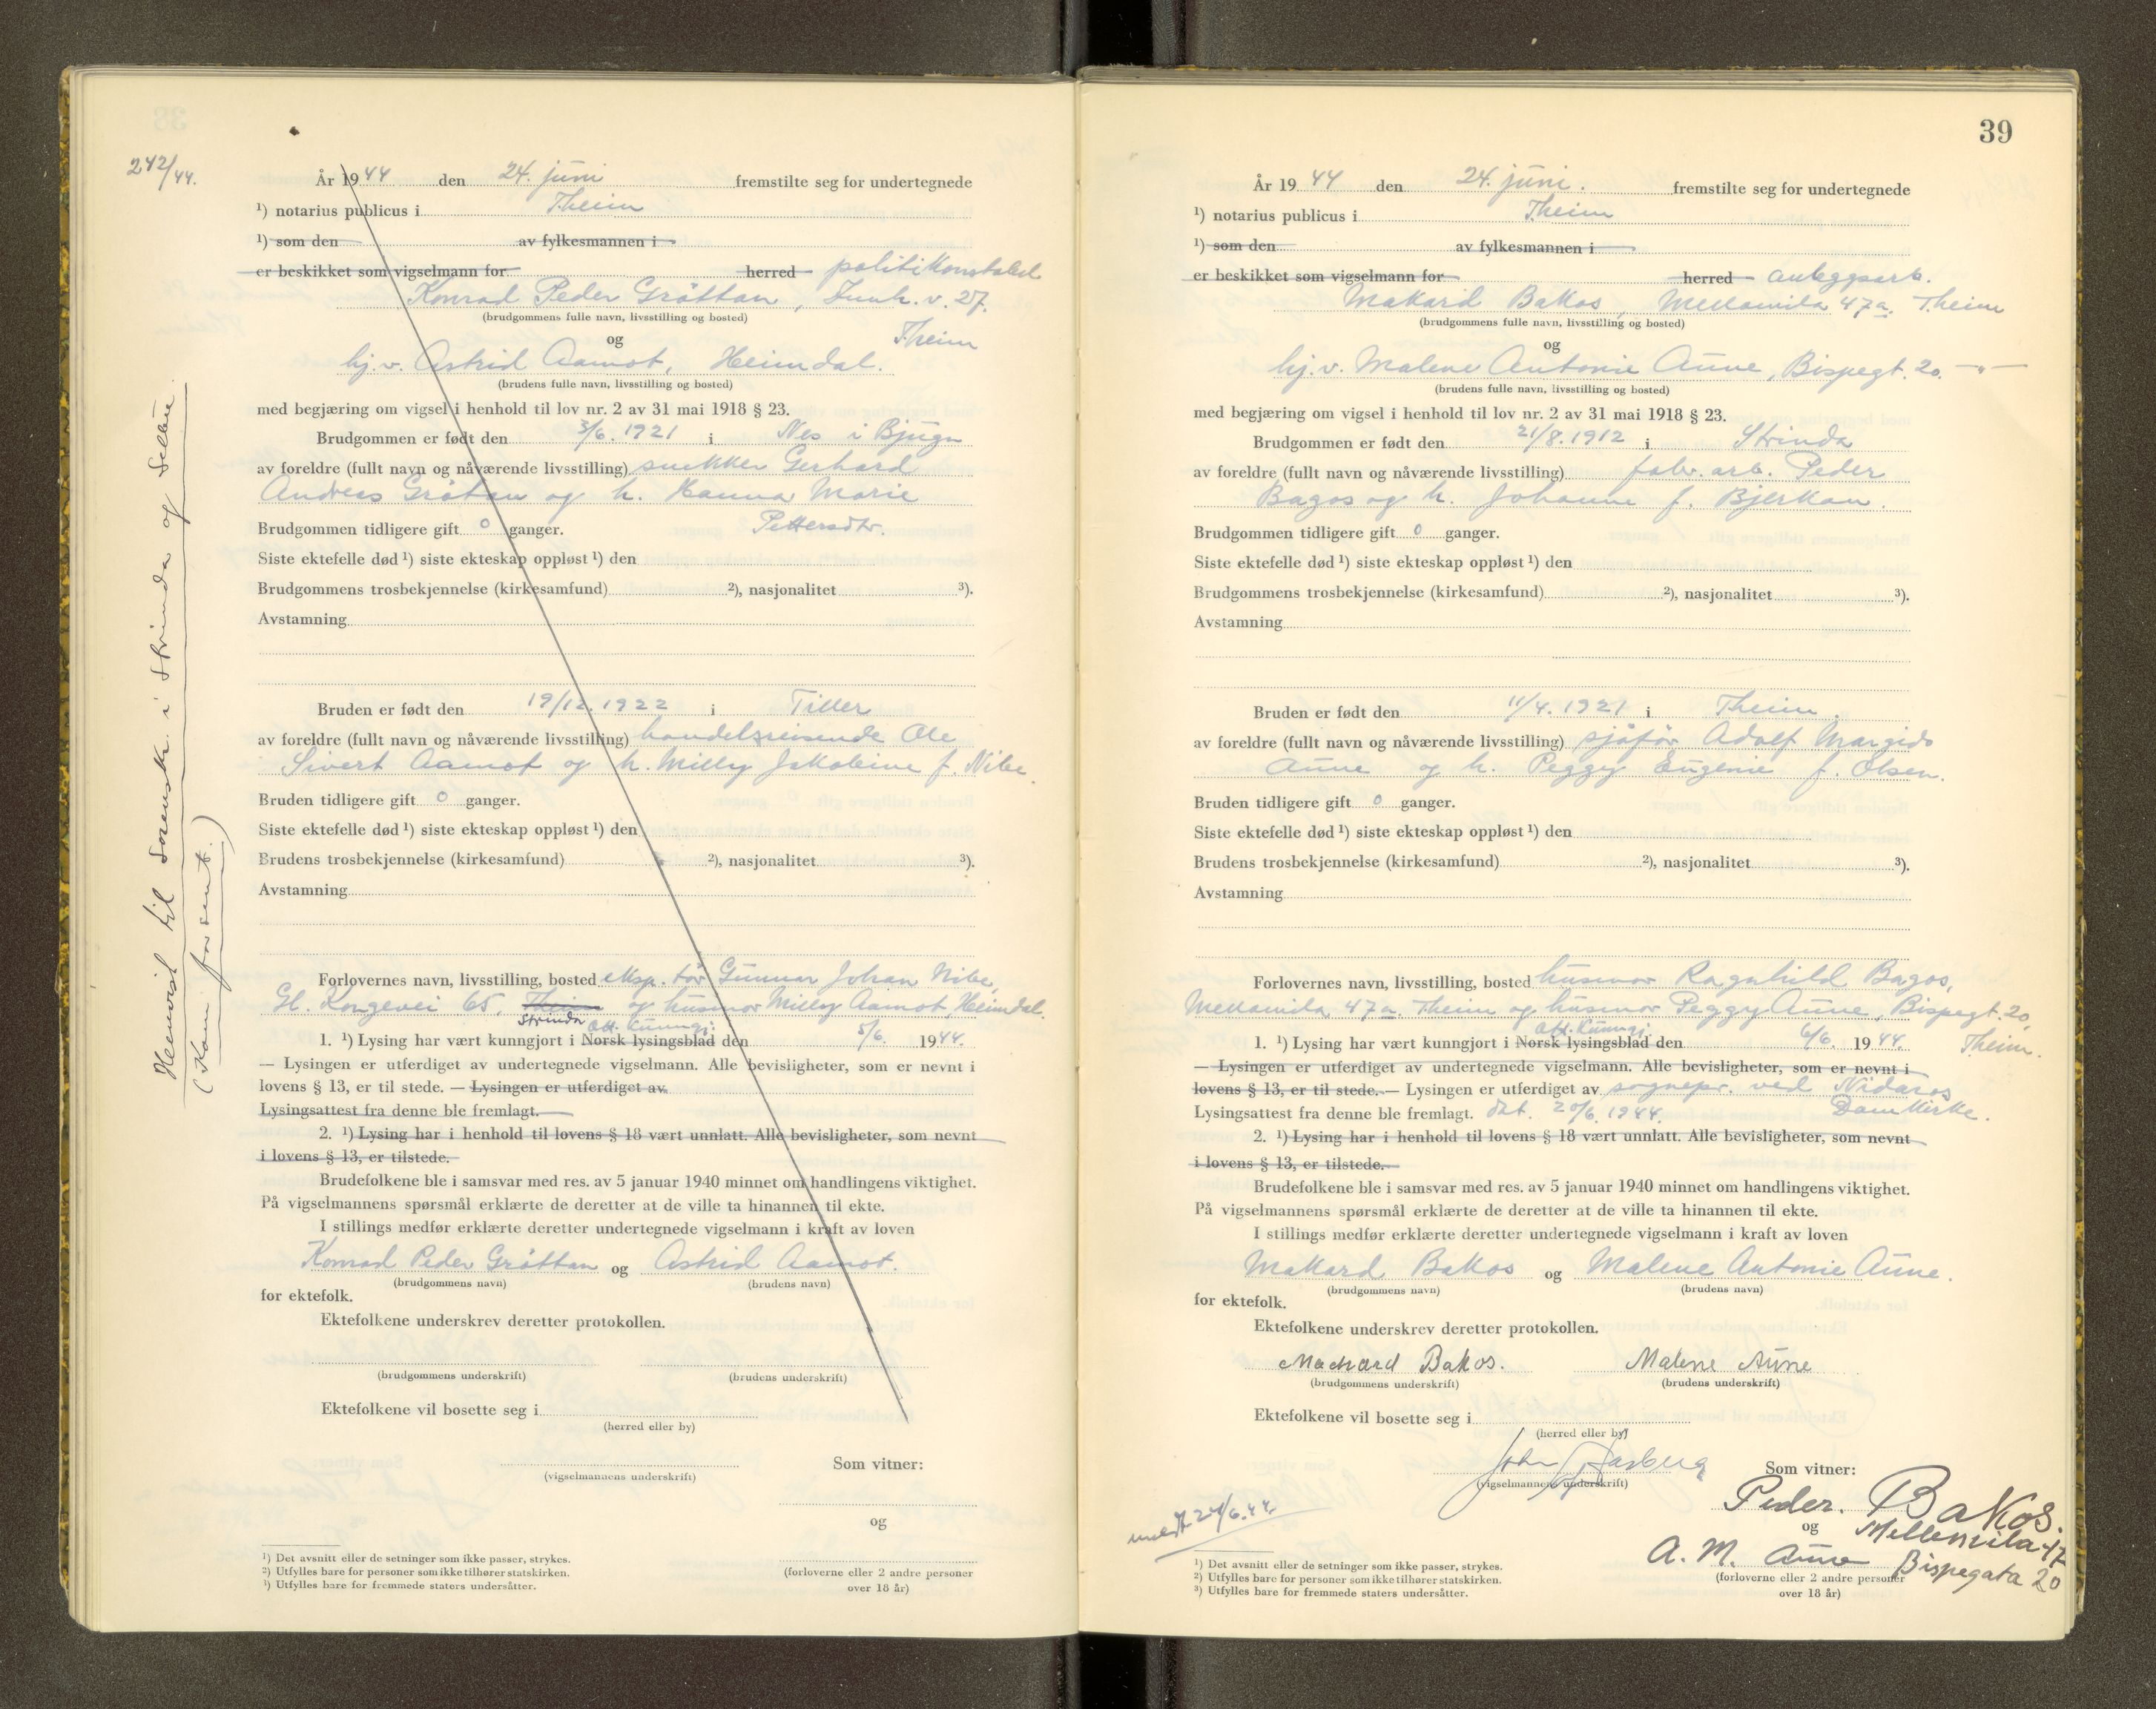 242/44.
År 1944 den 24. juni fremstilte seg for undertegnede
¹) notarius publicus i Theim
¹) som den av fylkesmannen i
er beskikket som vigselmann for herred politikonstabel
Konrad Peder Gråttan, v. 27.
(brudgommens fulle navn, livsstilling og bosted)
Theim
og
hj.v. Astrid Aamot, Heimdal.
(brudens fulle navn, livsstilling og bosted)
med begjæring om vigsel i henhold til lov nr. 2 av 31 mai 1918 § 23.
Brudgommen er født den 3/6. 1921 i Nes i Bjugn
av foreldre (fullt navn og nåværende livsstilling) snekker Gerhard
Andreas Gråtan og h. Hanna Marie
Pettersdtr.
Brudgommen tidligere gift 0 ganger.
Siste ektefelle død ¹) siste ekteskap oppløst ¹) den
Brudgommens trosbekjennelse (kirkesamfund) ²), nasjonalitet ³).
Avstamning
Bruden er født den 19/12. 1922 i Tiller
av foreldre (fullt navn og nåværende livsstilling) handelsreisende Ole
Sivert Aamot og h. Milly Jakobine f. Nibe.
Bruden tidligere gift 0 ganger.
Siste ektefelle død ¹) siste ekteskap oppløst ¹) den
Brudens trosbekjennelse (kirkesamfund) ²), nasjonalitet ³).
Avstamning
Forlovernes navn, livsstilling, bosted eksp.tør Gunnar Johan Nibe,
Gl. Kongevei 65, Theim og husmor Milly Aamot, Heimdal.
Strinda off. kunngj.
1. ¹) Lysing har vært kunngjort i Norsk lysingsblad den 5/6. 1944.
— Lysingen er utferdiget av undertegnede vigselmann. Alle bevisligheter, som er nevnt i
lovens § 13, er til stede. — Lysingen er utferdiget av
Lysingsattest fra denne ble fremlagt.
2. ¹) Lysing har i henhold til lovens § 18 vært unnlatt. Alle bevisligheter, som nevnt
i lovens § 13, er tilstede.
Brudefolkene ble i samsvar med res. av 5 januar 1940 minnet om handlingens viktighet.
På vigselmannens spørsmål erklærte de deretter at de ville ta hinannen til ekte.
I stillings medfør erklærte deretter undertegnede vigselmann i kraft av loven
Konrad Peder Gråttan og Astrid Aamot.
(brudgommens navn) (brudens navn)
for ektefolk.
Ektefolkene underskrev deretter protokollen.
(brudgommens underskrift) (brudens underskrift)
Ektefolkene vil bosette seg i
(herred eller by)
Som vitner:
(vigselmannens underskrift)
og
(forloverne eller 2 andre personer
over 18 år)
¹) Det avsnitt eller de setninger som ikke passer, strykes.
²) Utfylles bare for personer som ikke tilhører statskirken.
³) Utfylles bare for fremmede staters undersåtter.
Henvist til Sorenskr. i Strinda og Selbu.
(Kom for sent.)
39
År 1944 den 24. juni. fremstilte seg for undertegnede
¹) notarius publicus i Theim
¹) som den av fylkesmannen i
er beskikket som vigselmann for herred anleggsarb.
Makard Bakos, Mellomila 47a. Theim
(brudgommens fulle navn, livsstilling og bosted)
og
hj.v. Malene Antonie Aune, Bispegt. 20. —"—
(brudens fulle navn, livsstilling og bosted)
med begjæring om vigsel i henhold til lov nr. 2 av 31 mai 1918 § 23.
Brudgommen er født den 21/8. 1912 i Strinda
av foreldre (fullt navn og nåværende livsstilling) fabr. arb. Peder
Bagos og h. Johanne f. Bjerkan.
Brudgommen tidligere gift 0 ganger.
Siste ektefelle død ¹) siste ekteskap oppløst ¹) den
Brudgommens trosbekjennelse (kirkesamfund) ²), nasjonalitet ³).
Avstamning
Bruden er født den 11/4. 1921 i Theim.
av foreldre (fullt navn og nåværende livsstilling) sjåfør Adolf Margido
Aune og h. Peggy Eugenie f. Olsen.
Bruden tidligere gift 0 ganger.
Siste ektefelle død ¹) siste ekteskap oppløst ¹) den
Brudens trosbekjennelse (kirkesamfund) ²), nasjonalitet ³).
Avstamning
Forlovernes navn, livsstilling, bosted husmor Ragnhild Bagos,
Mellomila 47a. Theim og husmor Peggy Aune, Bispegt. 20,
off. kunngj.
1. ¹) Lysing har vært kunngjort i Norsk lysingsblad den 6/6. 1944. Theim.
— Lysingen er utferdiget av undertegnede vigselmann. Alle bevisligheter, som er nevnt i
lovens § 13, er til stede. — Lysingen er utferdiget av sognepr. ved Nidaros
Lysingsattest fra denne ble fremlagt. dat. 20/6. 1944. Domkirke.
2. ¹) Lysing har i henhold til lovens § 18 vært unnlatt. Alle bevisligheter, som nevnt
i lovens § 13, er tilstede.
Brudefolkene ble i samsvar med res. av 5 januar 1940 minnet om handlingens viktighet.
På vigselmannens spørsmål erklærte de deretter at de ville ta hinannen til ekte.
I stillings medfør erklærte deretter undertegnede vigselmann i kraft av loven
Makard Bakos og Malene Antonie Aune.
(brudgommens navn) (brudens navn)
for ektefolk.
Ektefolkene underskrev deretter protokollen.
Machard Bakos. Malene Aune
(brudgommens underskrift) (brudens underskrift)
Ektefolkene vil bosette seg i
(herred eller by)
John Aasberg Som vitner:
(vigselmannens underskrift)
Peder. Bakos.
og Mellemila 47
meldt 24/6.44.
A. M. Aune Bispegata 20
(forloverne eller 2 andre personer
over 18 år)
¹) Det avsnitt eller de setninger som ikke passer, strykes.
²) Utfylles bare for personer som ikke tilhører statskirken.
³) Utfylles bare for fremmede staters undersåtter.